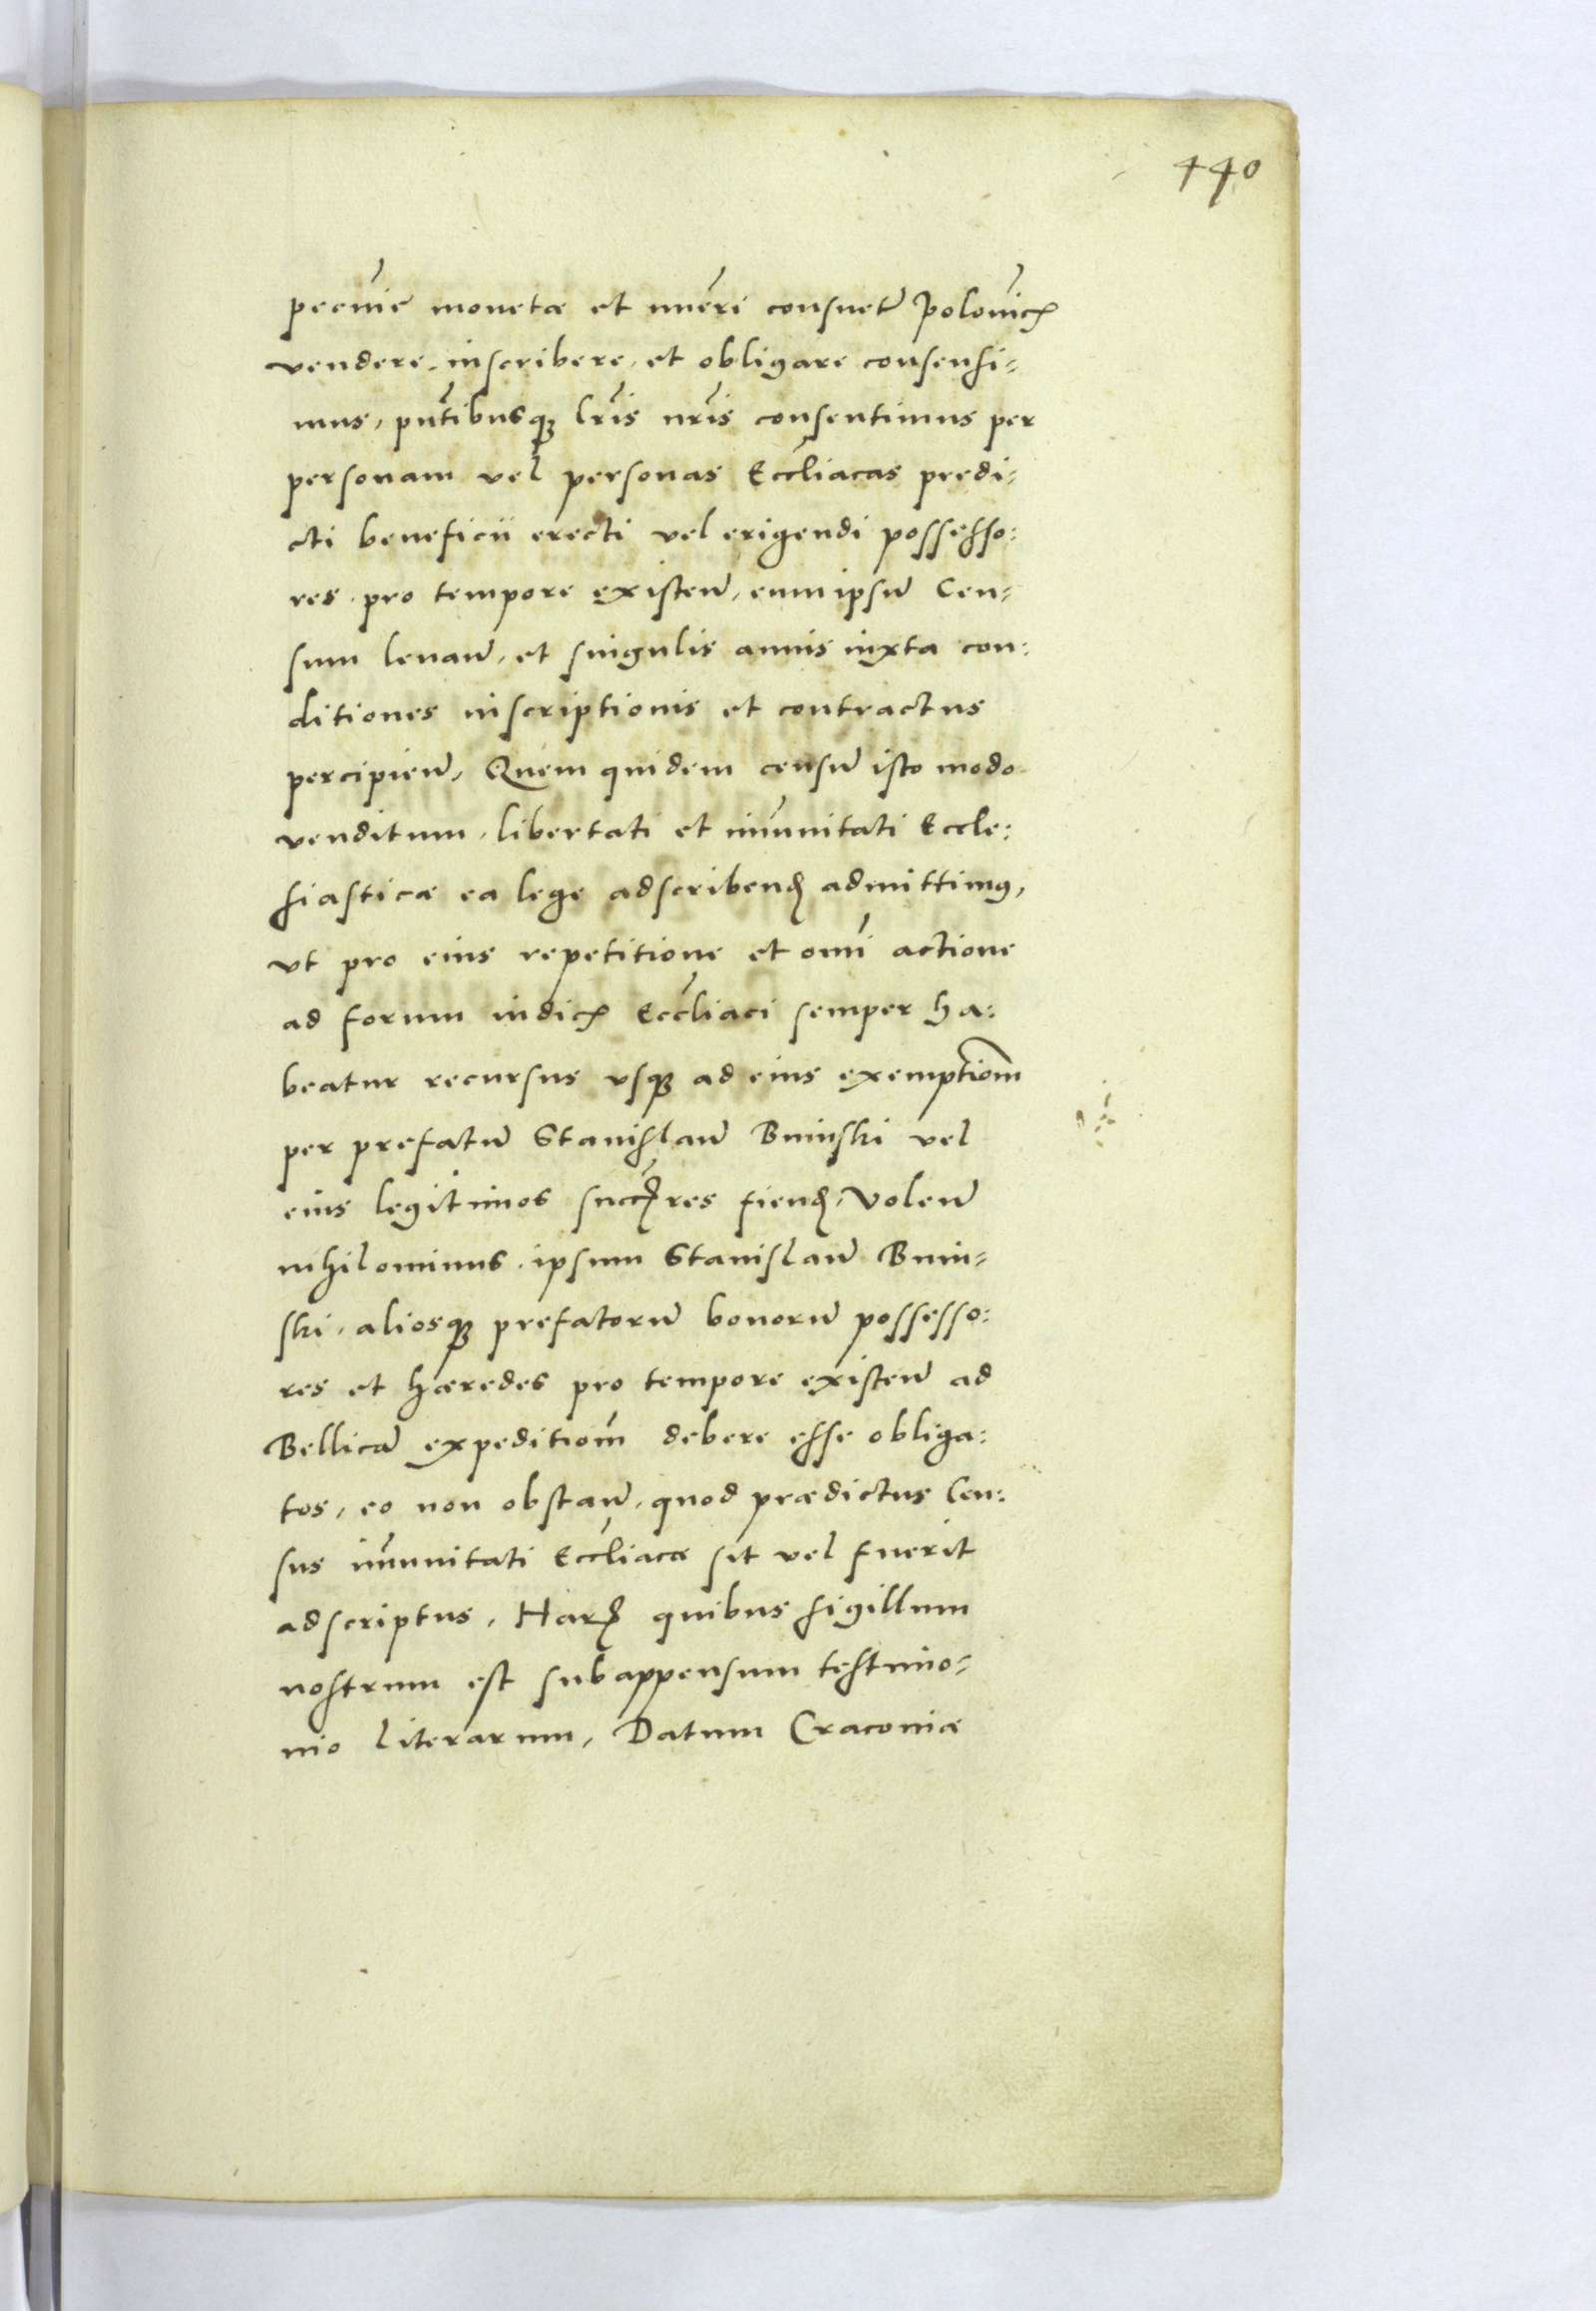 440
pecuniē monetæ et nūeri consuet̄ Polonic̄
vendere, inscribere, et obligare consensi-
mus, pn̄tibusq; lr̄is nr̄is consentimus per
personam vel personas Eccl̄iacas predi-
cti beneficii erecti vel erigendi possesso:
res pro tempore existeñ, eum ipsū Cen-
sum levañ, et singulis annis iuxta con:
ditiones inscriptionis et contractus
percipieñ, Quem quidem censū isto modo
venditum, libertati et im̄unitati Eccle:
siasticæ ea lege adscribend̄ admittimus,
vt pro eius repetitione et omī actione
ad forum iudic̄ Eccl̄iaci semper ha:
beatur recursus vsq; ad eius exemptiom̄
per prefatū Stanislaū Bninski vel
eius legitimos succ̄res fiend̄, Voleñ
nihilominus ipsum Stanislaū Bnin-
ski, aliosq; prefatorū bonorū possesso:
res et hæredes pro tempore existeñ ad
Bellicā expeditiom̄ debere esse obliga:
tos, eo non obstañ, quod prædictus Cen:
sus im̄unitati Eccl̄iacæ sit vel fuerit
adscriptus, Har̄ quibus sigillum
nostrum est subappensum testimo-
nio literarum, Datum Cracoviæ